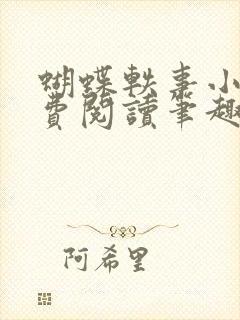 蝴蝶軼事小
費閱讀筆趣
阿希里